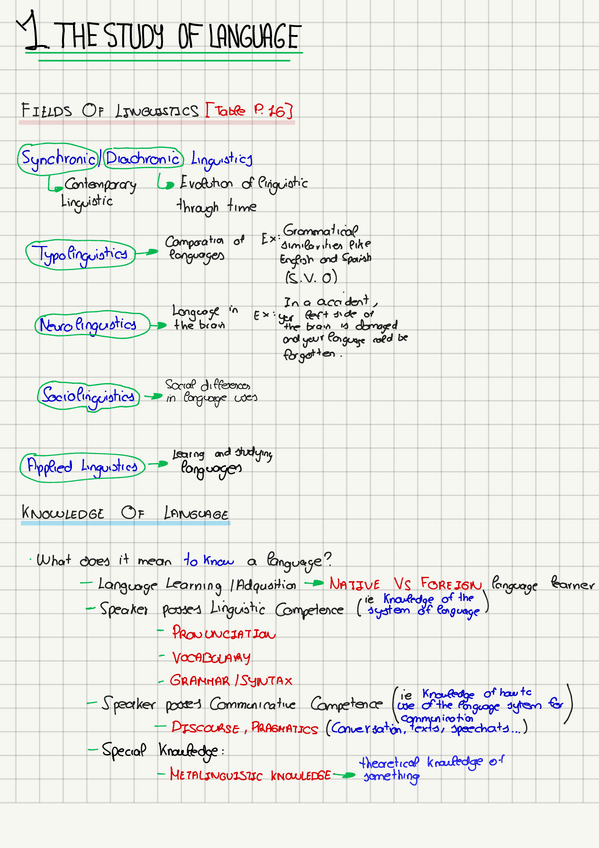 1. THE STUDY OF LANGUAGE
FIELDS OF LINGUISTICS [Table P.16]
Synchronic / Diachronic Linguistics
Contemporary Linguistic
Evolution of linguistic through time
Typolinguistics → Comparation of languages Ex: Grammatical similarities like English and Spanish (S.V.O)
Neurolinguistics → Language in the brain Ex: In a accident, your left side of the brain is damaged and your language could be forgotten.
Sociolinguistics → Social differences in language uses
Applied Linguistics → Learing and studying languages
KNOWLEDGE OF LANGUAGE
· What does it mean to know a language?
– Language Learning / Adqusition → NATIVE VS FOREIGN language learner
– Speaker posses Linguistic Competence (ie Knowledge of the system of language)
– PRONUNCIATION
– VOCABULARY
– GRAMMAR / SYNTAX
– Speaker posses Communicative Competence (ie Knowledge of how to use of the language sytem for communication)
– DISCOURSE, PRAGMATICS (Conversation, texts, speechats...)
– Special Knowledge:
– METALINGUISTIC KNOWLEDGE → theoretical knowledge of something